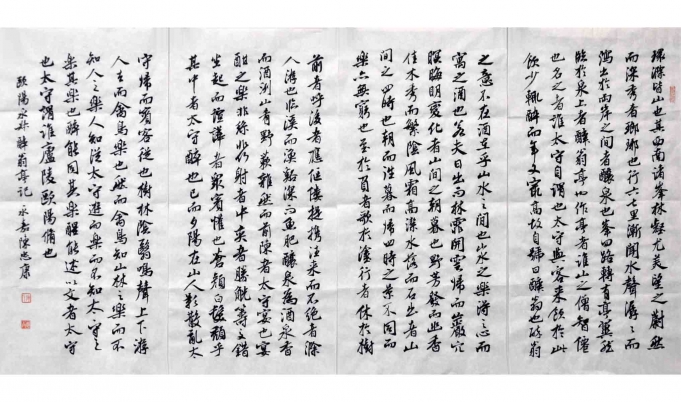 環滁皆山也其西南諸峯林壑尤美望之蔚然
而深秀者瑯琊也行六七里漸聞水聲潺潺而
瀉出於兩岸之間者釀泉也峯回路轉有亭翼然
臨於泉上者醉翁亭也作亭者誰山之僧智僊
也名之者誰太守自謂也太守與客來飲於此
飲少輒醉而年又最高故自號曰醉翁也醉翁
之意不在酒在乎山水之間也山水之樂得之心而
寓之酒也若夫日出而林霏開雲歸而巖穴
暝晦明變化者山間之朝暮也野芳發而幽香
佳木秀而繁陰風霜高潔水落而石出者山
間之四時也朝而往暮而歸四時之景不同而
樂亦無窮也至於負者歌於塗行者休於樹
前者呼後者應傴僂提攜往來而不絕者滁
人遊也臨溪而漁溪深而魚肥釀泉為酒泉香
而酒洌山肴野蔌雜然而前陳者太守宴也宴
酣之樂非絲非竹射者中奕者勝觥籌交錯
坐起而諠譁者衆賓懽也蒼顏白髮頹乎
其中者太守醉也已而夕陽在山人影散亂太
守歸而賓客從也樹林陰翳鳴聲上下游
人去而禽鳥樂也然而禽鳥知山林之樂而不
知人之樂人知從太守遊而樂而不知太守之
樂其樂也醉能同其樂醒能述以文者太守
也太守謂誰廬陵歐陽脩也
歐陽永叔醉翁亭記 永嘉陳忠康